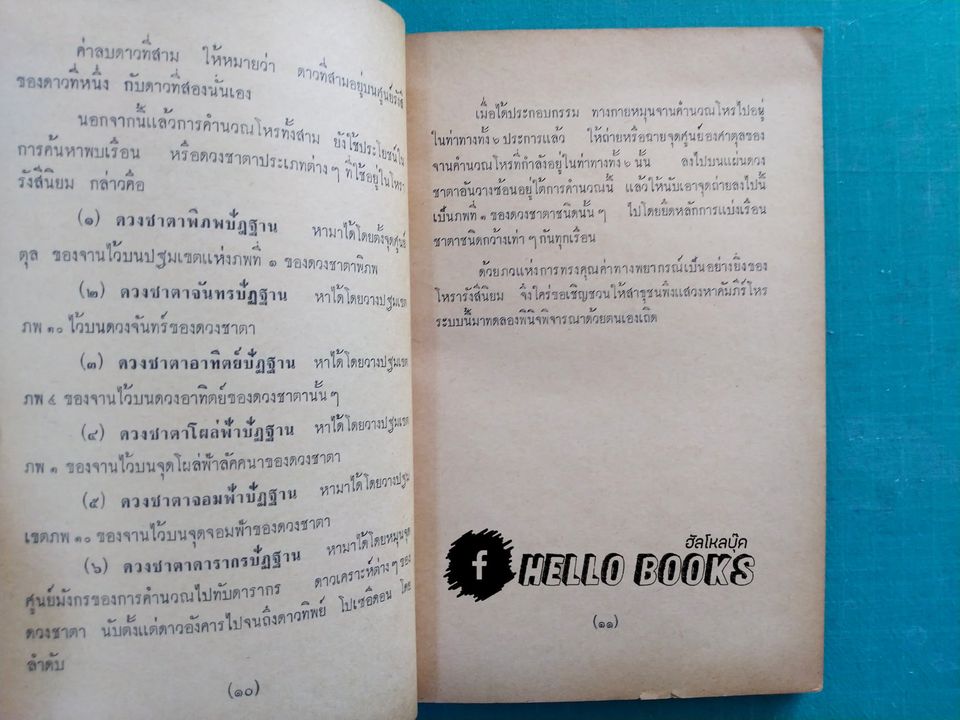 ค่าลบดาวที่สาม ให้หมายว่า ดาวที่สามอยู่บนศูนย์รังสี
ของดาวที่หนึ่ง กับดาวที่สองนั่นเอง
นอกจากนี้แล้วการคำนวณโหรทั้งสาม ยังใช้ประโยชน์ใน
การค้นหาพบเรือน หรือดวงชาตาประเภทต่าง ๆ ที่ใช้อยู่ในโหรา
รังสีนิยม กล่าวคือ
(๑) ดวงชาตาพิภพปัฏฐาน หามาได้โดยตั้งจุดศูนย์
ตุล ของจานไว้บนปฐมเขตแห่งภพที่ ๑ ของดวงชาตาพิภพ
(๒) ดวงชาตาจันทรปัฏฐาน หาได้โดยวางปฐมเขต
ภพ ๑๐ ไว้บนดวงจันทร์ของดวงชาตา
(๓) ดวงชาตาอาทิตย์ปัฏฐาน หาได้โดยวางปฐมเขต
ภพ ๔ ของจานไว้บนดวงอาทิตย์ของดวงชาตานั้น ๆ
(๔) ดวงชาตาโผล่ฟ้าปัฏฐาน หาได้โดยวางปฐมเขต
ภพ ๑ ของจานไว้บนจุดโผล่ฟ้าลัคคนาของดวงชาตา
(๕) ดวงชาตาจอมฟ้าปัฏฐาน หามาได้โดยวางปฐม
เขตภพ ๑๐ ของจานไว้บนจุดจอมฟ้าของดวงชาตา
(๖) ดวงชาตาดารากรปัฏฐาน หามาได้โดยหมุนจุด
ศูนย์มังกรของการคำนวณไปทับดารากร ดาวเคราะห์ต่าง ๆ ของ
ดวงชาตา นับตั้งแต่ดาวอังคารไปจนถึงดาวทิพย์ โปเซอิดอน โดย
ลำดับ
(๑๐)
เมื่อได้ประกอบกรรม ทางกายหมุนจานคำนวณโหรไปอยู่
ในท่าทางทั้ง ๖ ประการแล้ว ให้ถ่ายหรือฉายจุดศูนย์องศาตุลของ
จานคำนวณโหรที่กำลังอยู่ในท่าทางทั้ง ๖ นั้น ลงไปบนแผ่นดวง
ชาตาอันวางซ้อนอยู่ใต้การคำนวณนี้ แล้วให้นับเอาจุดถ่ายลงไปนี้
เป็นภพที่ ๑ ของดวงชาตาชนิดนั้น ๆ ไปโดยยึดหลักการแบ่งเรือน
ชาตาชนิดกว้างเท่า ๆ กันทุกเรือน
ด้วยภวแห่งการทรงคุณค่าทางพยากรณ์เป็นอย่างยิ่งของ
โหรารังสีนิยม จึงใคร่ขอเชิญชวนให้สาธุชนพึงแสวงหาคัมภีร์โหร
ระบบนี้มาทดลองพินิจพิจารณาด้วยตนเองเถิด
ฮัลโหลบุ๊ค
f HELLO BOOKS
(๑๑)